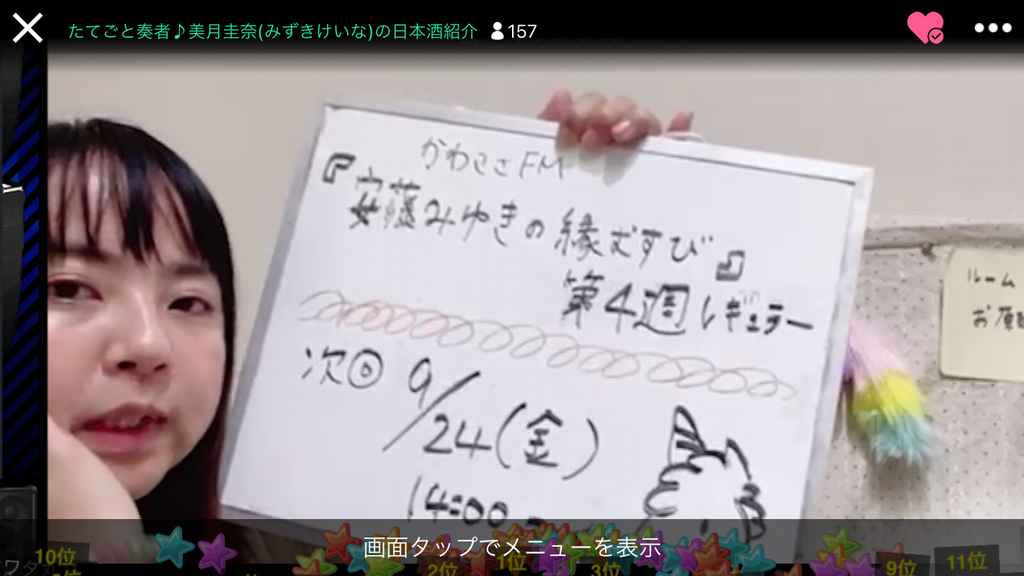 たてごと奏者♪美月圭奈(みずきけいな)の日本酒紹介 157
かわさきFM
『安藤みゆきの縁むすび』
第4週レギュラー
次回 9/24(金)
14:00
ルーム
画面タップでメニューを表示
10位
2位
1位
3位
9位
11位